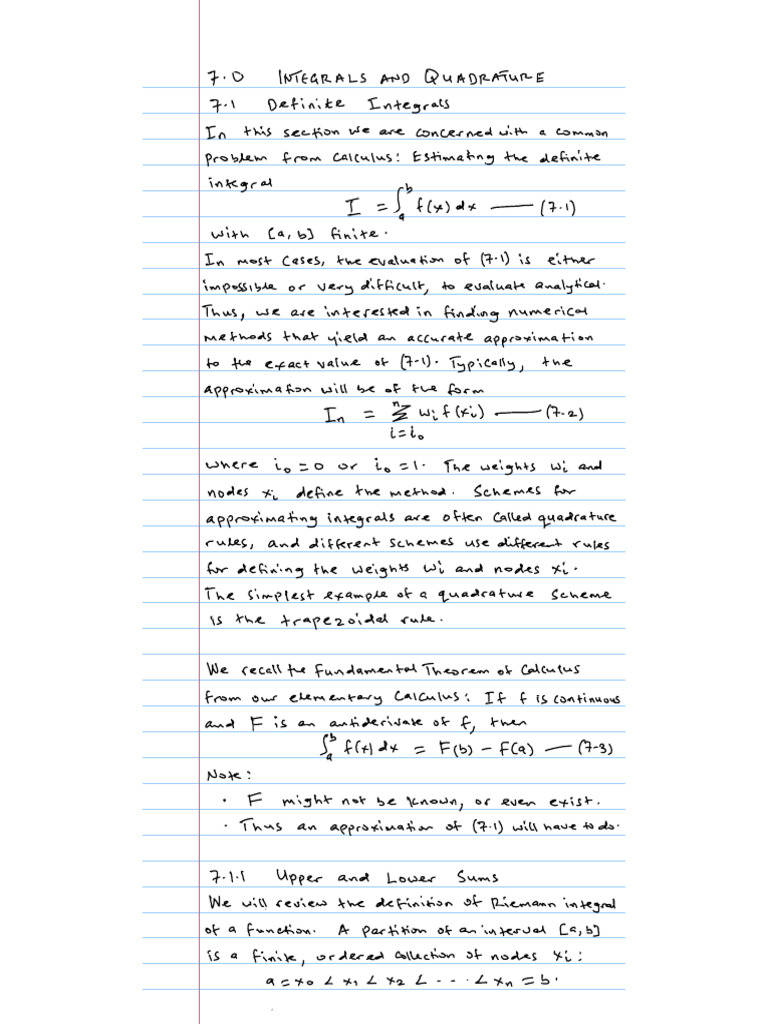 7.0 INTEGRALS AND QUADRATURE
7.1 Definite Integrals
In this section we are concerned with a common
problem from calculus: Estimating the definite
integral
I = ∫_a^b f(x) dx —— (7.1)
with [a, b] finite.
In most cases, the evaluation of (7.1) is either
impossible or very difficult, to evaluate analytical.
Thus, we are interested in finding numerical
methods that yield an accurate approximation
to the exact value of (7.1). Typically, the
approximation will be of the form
I_n = Σ_{i=i_0}^{n} w_i f(x_i) —— (7.2)
where i_0 = 0 or i_0 = 1. The weights w_i and
nodes x_i define the method. Schemes for
approximating integrals are often called quadrature
rules, and different schemes use different rules
for defining the weights w_i and nodes x_i.
The simplest example of a quadrature scheme
is the trapezoidal rule.
We recall the Fundamental Theorem of Calculus
from our elementary Calculus: If f is continuous
and F is an antiderivate of f, then
∫_a^b f(x) dx = F(b) − F(a) — (7.3)
Note:
· F might not be known, or even exist.
· Thus an approximation of (7.1) will have to do.
7.1.1 Upper and Lower Sums
We will review the definition of Riemann integral
of a function. A partition of an interval [a, b]
is a finite, ordered collection of nodes x_i:
a = x_0 < x_1 < x_2 < ... < x_n = b.